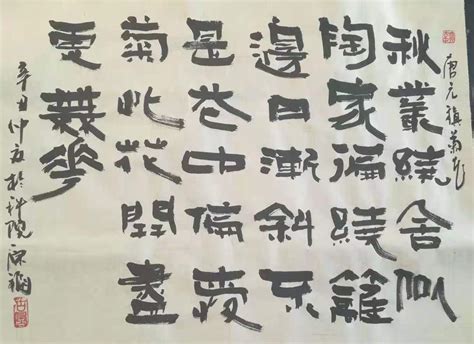 唐元稹菊花
秋叢繞舍似
陶家徧繞籬
邊日漸斜不
是花中偏愛
菊此花開盡
更無花
辛丑仲夏於科院